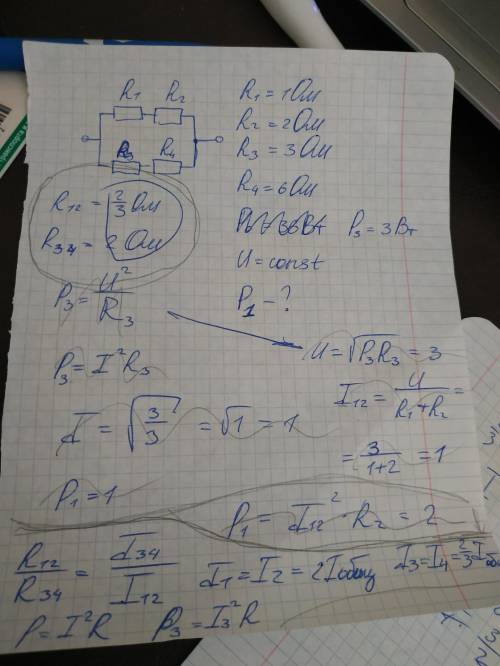 R₁ R₂
R₃ R₄
R₁ = 1 Ом
R₂ = 2 Ом
R₃ = 3 Ом
R₄ = 6 Ом
P₃ = 3 Вт
U = const
P₁ - ?
R₁₂ = 2/3 Ом
R₃₄ = 2 Ом
P₃ = U²/R₃
P₃ = I²R₃
I = √(3/3) = √1 = 1
P₁ = 1
U = √(P₃R₃) = 3
I₁₂ = U/(R₁+R₂) =
= 3/(1+2) = 1
P₁ = I₁₂² · R₂ = 2
R₁₂/R₃₄ = I₃₄/I₁₂
I₁ = I₂ = 2Iобщ
I₃ = I₄ = 2/3 Iоб
P = I²R
P₃ = I₃²R